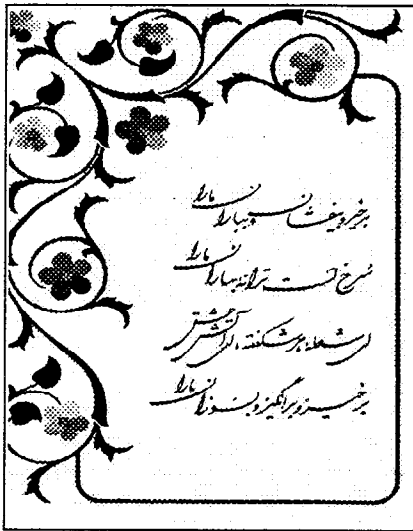 برخیز و بیفشان و بباران یارا
سرخ است ترانه بهاران یارا
ای شعله برشکفته، ای آتش عشق
برخیز و برانگیز و بسوزان یارا